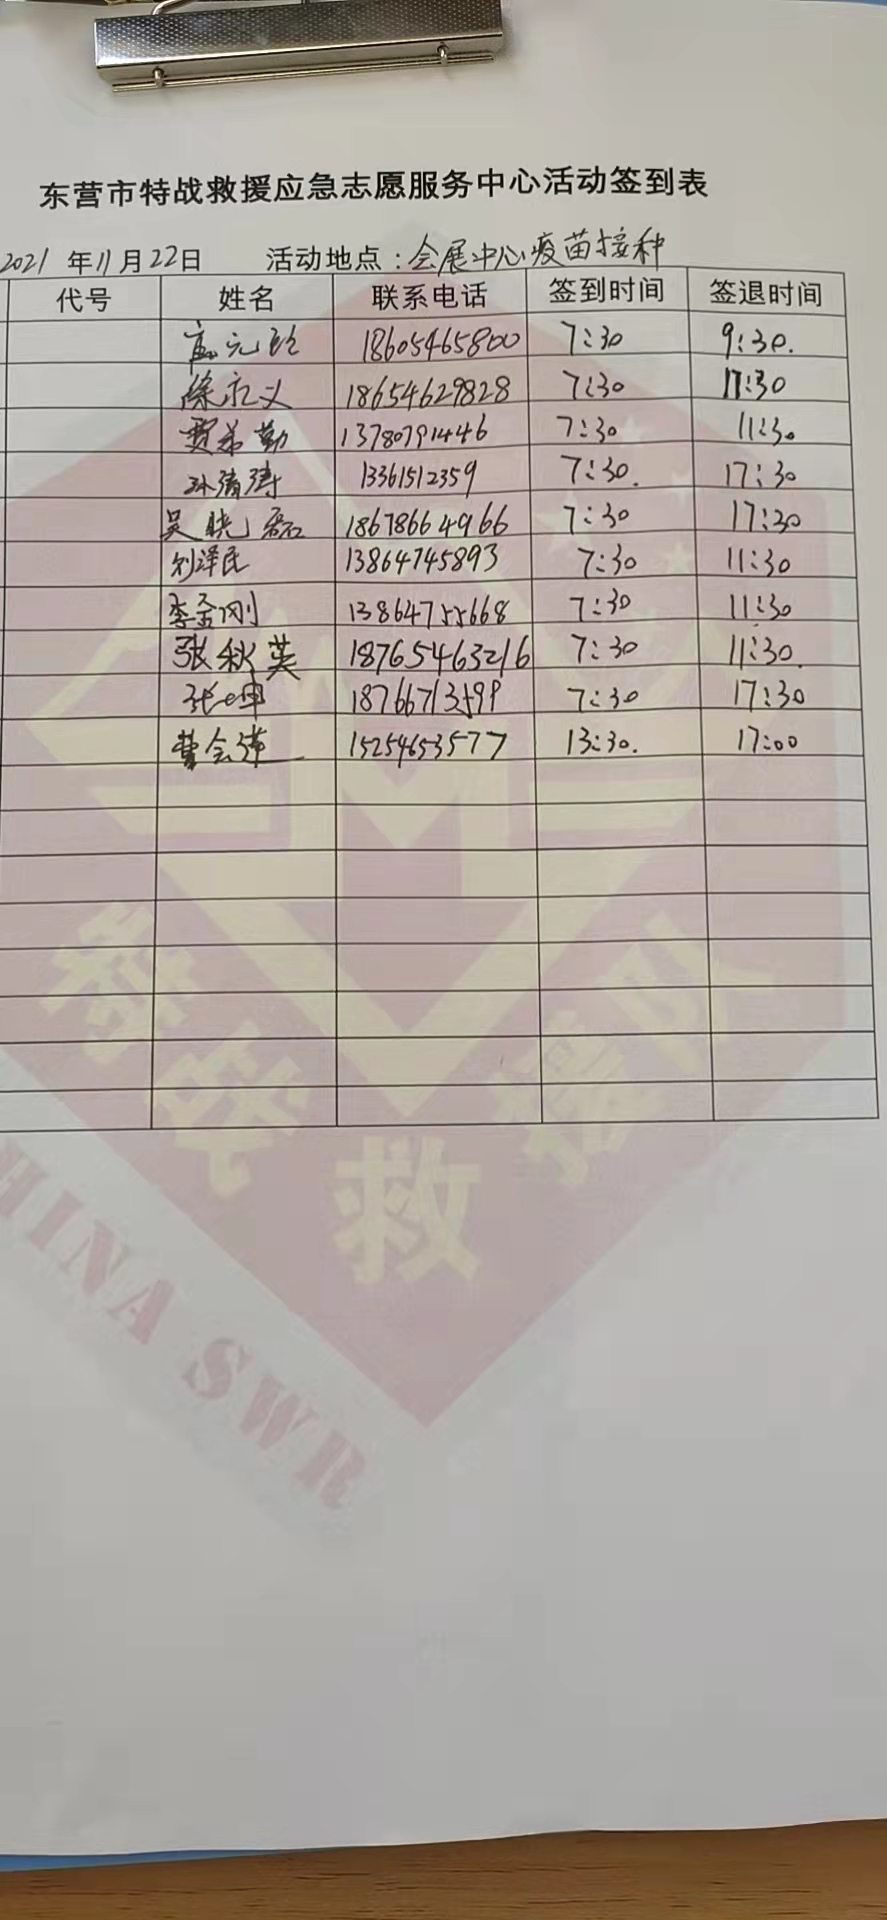 东营市特战救援应急志愿服务中心活动签到表
2021 年 11 月 22 日 活动地点：会展中心疫苗接种
代号 姓名 联系电话 签到时间 签退时间
18605465800 7:30 9:30.
徐永义 18654629828 7:30 17:30
13780791446 7:30 11:30
孙清涛 13361512359 7:30. 17:30
吴晓磊 18678664966 7:30 17:30
刘泽民 13864745893 7:30 11:30
李金刚 13864755668 7:30 11:30
张秋英 18765463216 7:30 11:30.
张坤 18766713599 7:30 17:30
15254653577 13:30. 17:00
特战救援队
HINA SWR